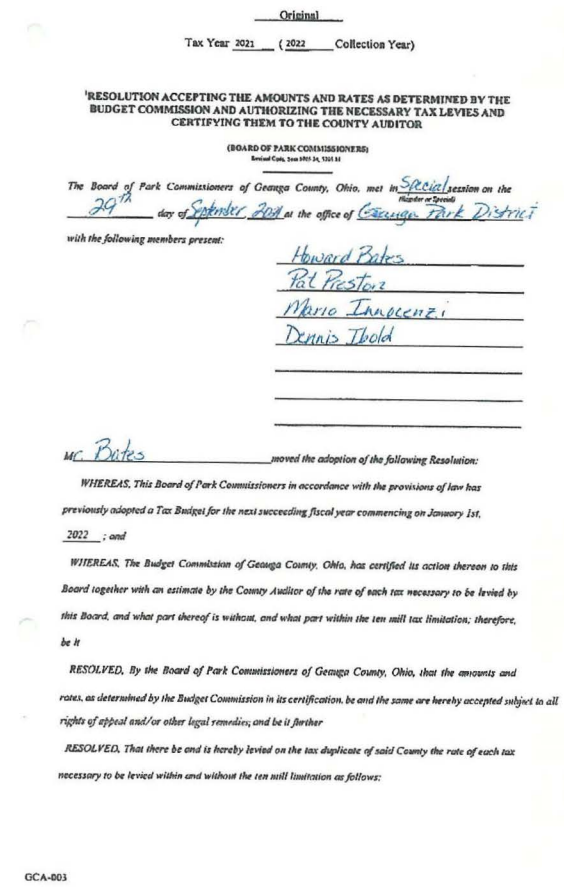 Original
Tax Year 2021 ( 2022 Collection Year)
'RESOLUTION ACCEPTING THE AMOUNTS AND RATES AS DETERMINED BY THE
BUDGET COMMISSION AND AUTHORIZING THE NECESSARY TAX LEVIES AND
CERTIFYING THEM TO THE COUNTY AUDITOR
(BOARD OF PARK COMMISSIONERS)
Revised Code, Secs
The Board of Park Commissioners of Geauga County, Ohio, met in Special session on the
(Regular or Special)
29th day of September 2021 at the office of Geauga Park District
with the following members present:
Howard Bates
Pat Preston
Mario Innocenzi
Dennis Ibold
Mr. Bates moved the adoption of the following Resolution:
WHEREAS, This Board of Park Commissioners in accordance with the provisions of law has
previously adopted a Tax Budget for the next succeeding fiscal year commencing on January 1st,
2022 ; and
WHEREAS, The Budget Commission of Geauga County, Ohio, has certified its action thereon to this
Board together with an estimate by the County Auditor of the rate of each tax necessary to be levied by
this Board, and what part thereof is without, and what part within the ten mill tax limitation; therefore,
be it
RESOLVED, By the Board of Park Commissioners of Geauga County, Ohio, that the amounts and
rates, as determined by the Budget Commission in its certification, be and the same are hereby accepted subject to all
rights of appeal and/or other legal remedies; and be it further
RESOLVED, That there be and is hereby levied on the tax duplicate of said County the rate of each tax
necessary to be levied within and without the ten mill limitation as follows:
GCA-003